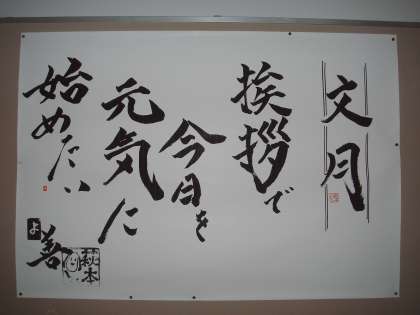 文月
挨拶で
今日を
元気に
始めたい
よ善
萩本